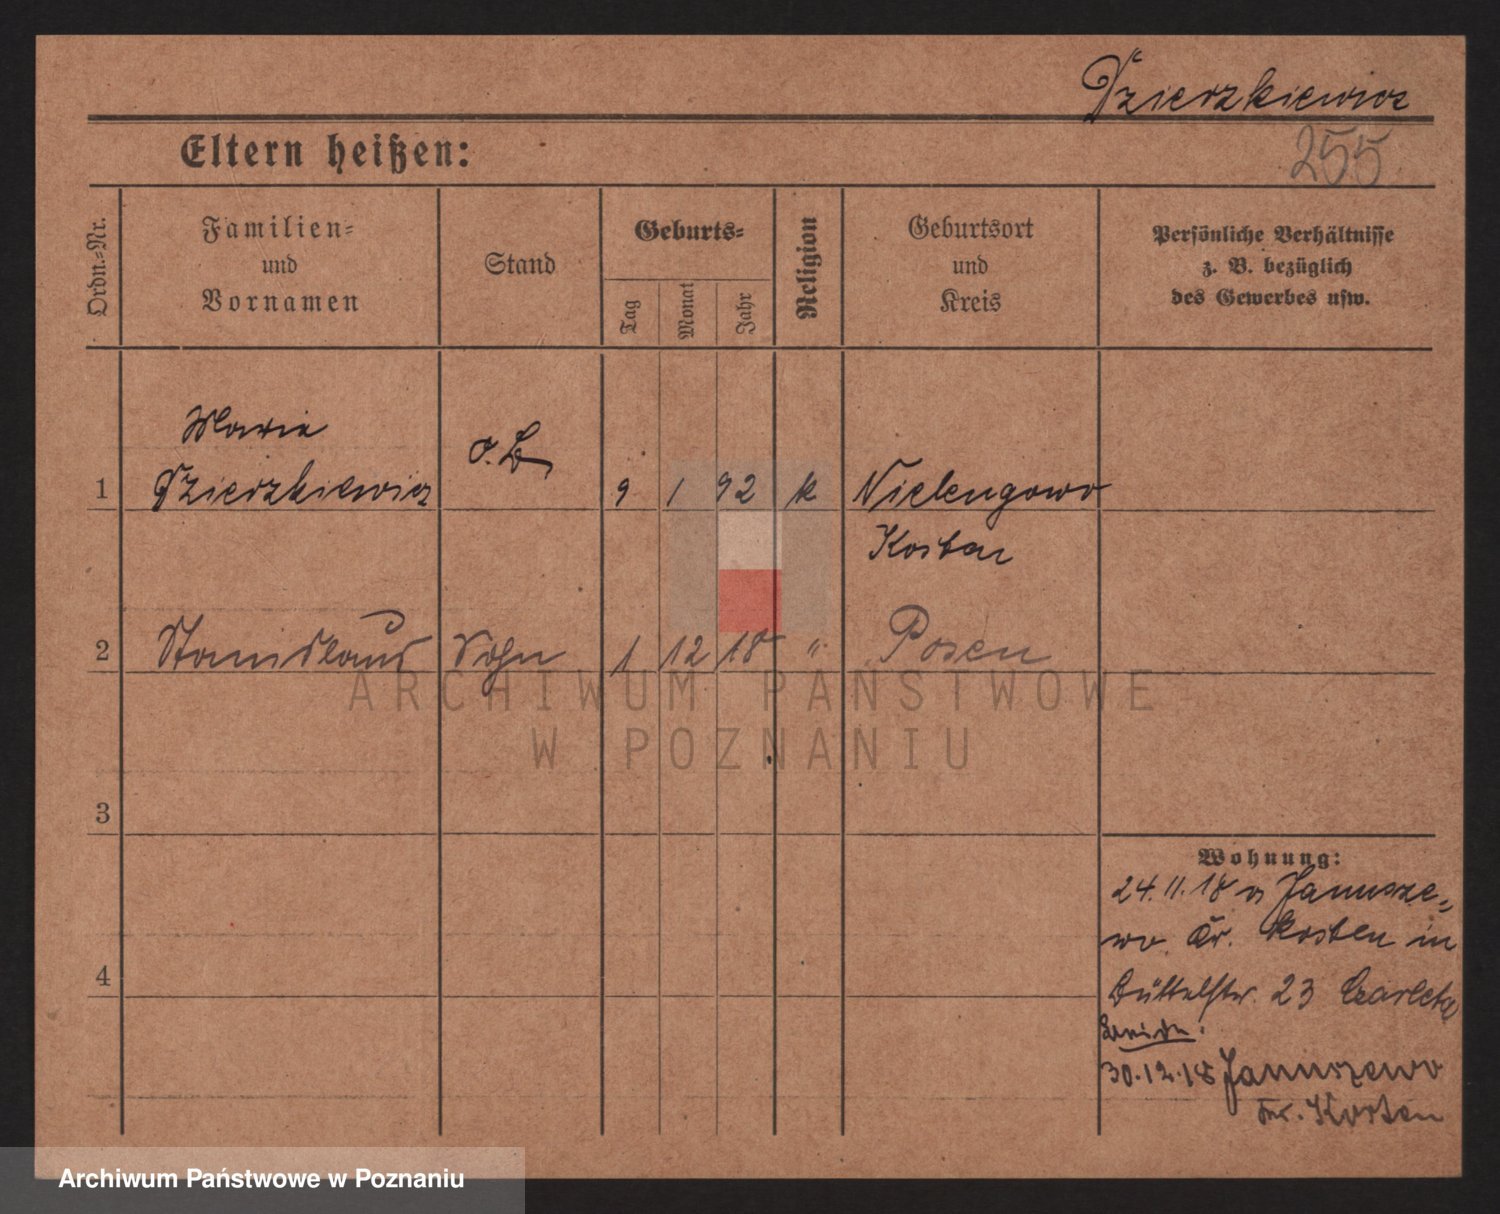 Dzierzkiewicz
Eltern heißen:
255
Ordn.-Nr.
Familien-
und
Vornamen
Stand
Geburts-
Tag
Monat
Jahr
Religion
Geburtsort
und
Kreis
Persönliche Verhältnisse
z. B. bezüglich
des Gewerbes usw.
Marie
1 Dzierzkiewicz o. B 9 1 92 k Nielengowo
Kosten
2 Stanislaus Sohn 1 12 18 " Posen
ARCHIWUM PAŃSTWOWE
W POZNANIU
3
4
Wohnung:
24.11.18 v Janusze-
wo Kr. Kosten in
Büttelstr. 23
30.12.18 Januszewo
Kr. Kosten
Archiwum Państwowe w Poznaniu